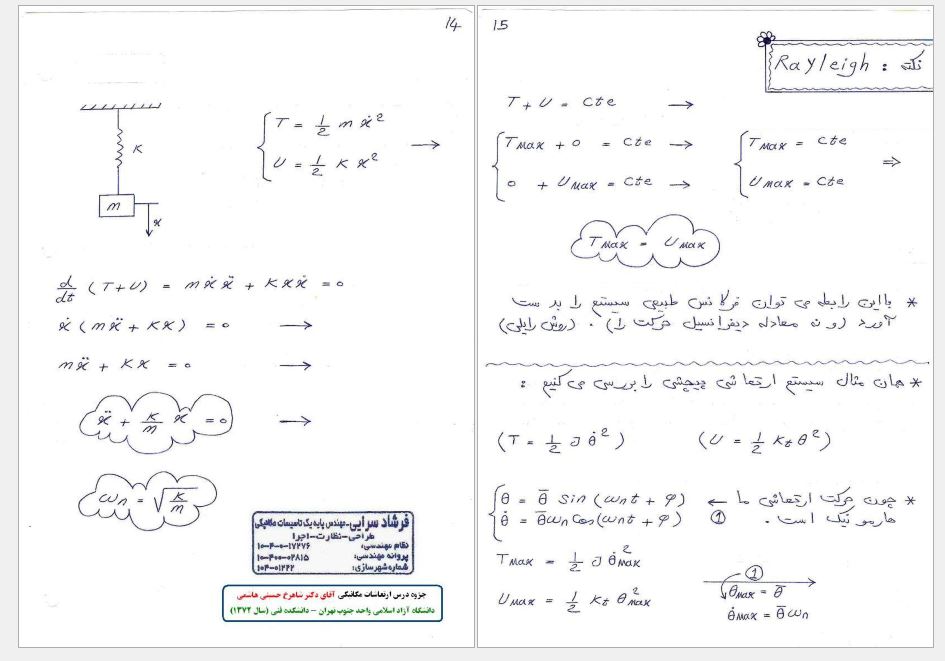 14
K
m
x
T = 1/2 m ẋ²
U = 1/2 K x²
d/dt (T+U) = mẋẍ + Kxẋ = 0
ẋ (mẍ + Kx) = 0
mẍ + Kx = 0
ẍ + K/m x = 0
ωn = √(K/m)
فرشاد سرایی-مهندس پایه یک تاسیسات مکانیکی
طراحی-نظارت-اجرا
نظام مهندسی: ۱۰-۴-۰-۱۷۲۷۶
پروانه مهندسی: ۱۰-۴۰۰-۰۲۸۱۵
شماره شهرسازی: ۱۰۴-۰۱۲۴۲
جزوه درس ارتعاشات مکانیکی آقای دکتر شاهرخ حسینی هاشمی
دانشگاه آزاد اسلامی واحد جنوب تهران – دانشکده فنی (سال ۱۳۷۲)
15
نکته : Rayleigh
T + U = Cte →
TMax + 0 = Cte →
0 + UMax = Cte →
TMax = Cte
UMax = Cte
⇒
TMax = UMax
* با این رابطه می توان فرکانس طبیعی سیستم را بدست
آورد (و نه معادله دیفرانسیل حرکت را) . (روش رایلی)
* همان مثال سیستم ارتعاشی پیچشی را بررسی می کنیم :
(T = 1/2 J θ̇²) (U = 1/2 Kt θ²)
* چون حرکت ارتعاشی ما ← θ = θ̄ Sin (ωnt + φ)
هارمونیک است . ① θ̇ = θ̄ωn Cos(ωnt + φ)
TMax = 1/2 J θ̇²Max
UMax = 1/2 Kt θ²Max
①
θMax = θ̄
θ̇Max = θ̄ωn